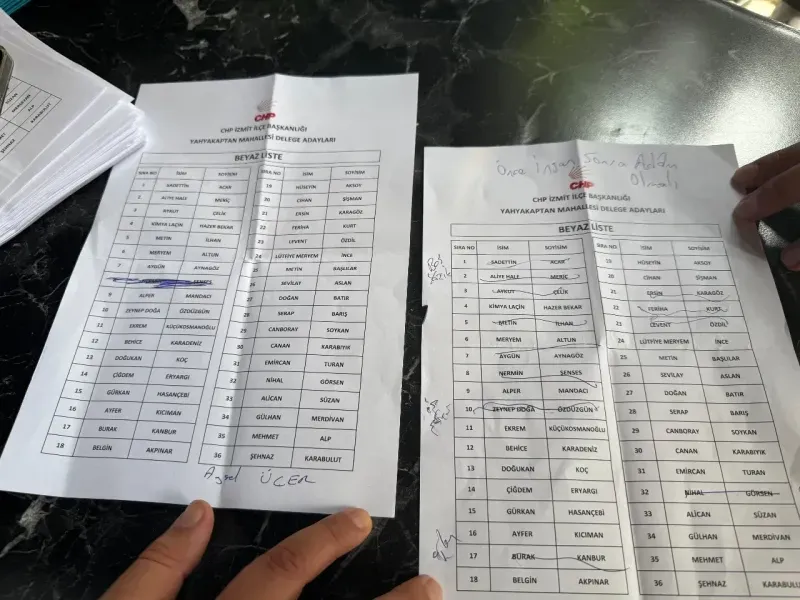 CHP
CHP İZMİT İLÇE BAŞKANLIĞI
YAHYAKAPTAN MAHALLESİ DELEGE ADAYLARI
BEYAZ LİSTE
SIRA NO İSİM SOYİSİM SIRA NO İSİM SOYİSİM
1 SADETTİN ACAR 19 HÜSEYİN AKSOY
2 ALİYE HALE MERİÇ 20 CİHAN ŞİŞMAN
3 AYKUT ÇELİK 21 ERSİN KARAGÖZ
4 KİMYA LAÇİN HAZER BEKAR 22 FERİHA KURT
5 METİN İLHAN 23 LEVENT ÖZDİL
6 MERYEM ALTUN 24 LÜTFİYE MERYEM İNCE
7 AYGÜN AYNAGÖZ 25 METİN BAŞLILAR
ŞENSES 26 SEVİLAY ASLAN
9 ALPER MANDACI 27 DOĞAN BATIR
10 ZEYNEP DOĞA ÖZDÜZGÜN 28 SERAP BARIŞ
11 EKREM KÜÇÜKOSMANOĞLU 29 CANBORAY SOYKAN
12 BEHİCE KARADENİZ 30 CANAN KARABIYIK
13 DOĞUKAN KOÇ 31 EMİRCAN TURAN
14 ÇİĞDEM ERYARGI 32 NİHAL GÖRSEN
15 GÜRKAN HASANÇEBİ 33 ALİCAN SÜZAN
16 AYFER KICIMAN 34 GÜLHAN MERDİVAN
17 BURAK KANBUR 35 MEHMET ALP
18 BELGİN AKPINAR 36 ŞEHNAZ KARABULUT
Aysel ÜÇER
Önce İnsan Sonra Adam
Olmalı
CHP
CHP İZMİT İLÇE BAŞKANLIĞI
YAHYAKAPTAN MAHALLESİ DELEGE ADAYLARI
BEYAZ LİSTE
SIRA NO İSİM SOYİSİM SIRA NO İSİM SOYİSİM
1 SADETTİN ACAR 19 HÜSEYİN AKSOY
2 ALİYE HALE MERİÇ 20 CİHAN ŞİŞMAN
3 AYKUT ÇELİK 21 ERSİN KARAGÖZ
4 KİMYA LAÇİN HAZER BEKAR 22 FERİHA KURT
5 METİN İLHAN 23 LEVENT ÖZDİL
6 MERYEM ALTUN 24 LÜTFİYE MERYEM İNCE
7 AYGÜN AYNAGÖZ 25 METİN BAŞLILAR
8 NERMİN ŞENSES 26 SEVİLAY ASLAN
9 ALPER MANDACI 27 DOĞAN BATIR
10 ZEYNEP DOĞA ÖZDÜZGÜN 28 SERAP BARIŞ
11 EKREM KÜÇÜKOSMANOĞLU 29 CANBORAY SOYKAN
12 BEHİCE KARADENİZ 30 CANAN KARABIYIK
13 DOĞUKAN KOÇ 31 EMİRCAN TURAN
14 ÇİĞDEM ERYARGI 32 NİHAL GÖRSEN
15 GÜRKAN HASANÇEBİ 33 ALİCAN SÜZAN
16 AYFER KICIMAN 34 GÜLHAN MERDİVAN
17 BURAK KANBUR 35 MEHMET ALP
18 BELGİN AKPINAR 36 ŞEHNAZ KARABULU
TURAN
GÖRSEN
MERDİVEN
ALP
KARABULUT